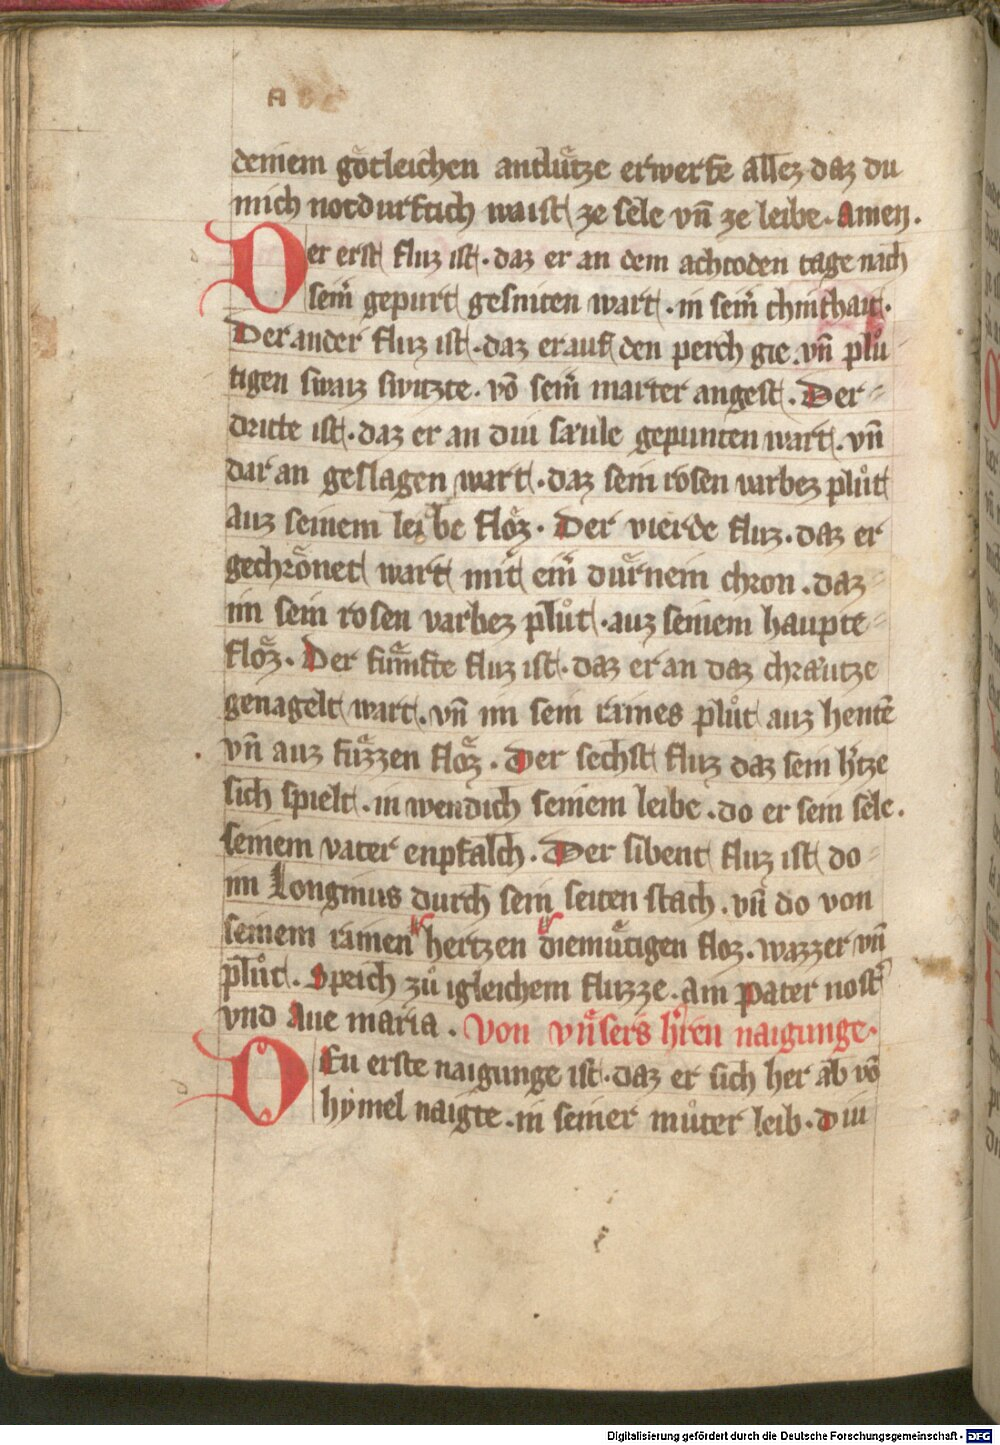 A
deinem gõtleichen antluͤtze erwerfe allez daz du
mich notdurftich waist ze sele vn̄ ze leibe. Amen.
Der erst fluz ist. daz er an dem achtoden tage nach
sem̄ gepurt gesniten wart. in sem̄ chinthait.
Der ander fluz ist. daz er auf den perch gie. vn̄ pluͦ
tigen swaiz switzte. võ sem̄ marter angest. Der
dritte ist. daz er an diu saͤule gepunten wart. vn̄
dar an geslagen wart. daz sein rosen varbez pluͦt
auz seinem leibe floͤz. Der vierde fluz. daz er
gechroͤnet wart mit eim̄ duͤrnein chron. daz
im sein rosen varbez pluͦt. auz seinem haupte
floͤz. Der fumͤfte fluz ist. daz er an daz chraͤutze
genagelt wart. vn̄ im sein raines pluͦt auz hentē
vn̄ auz fuͤzzen floͤz. Der sechst fluz daz sein h̾tze
sich spielt. in wendich seinem leibe. do er sein sele.
seinem vater enpfalch. Der sibent fluz ist do
im Longinus durch sein seiten stach. vn̄ do von
seinem rainen hertzen diemuͤtigen floz. wazzer vn̄
pluͦt. Sprich zuͦ igleichem fluzze. Ain Pater nost̾
vnd Aue maria. Von vnͤsers h̾ren naigunge.
Deu erste naigunge ist. daz er sich her ab võ
hẏmel naigte. in seiner muͦter leib. Diu
Digitalisierung gefördert durch die Deutsche Forschungsgemeinschaft - DFG